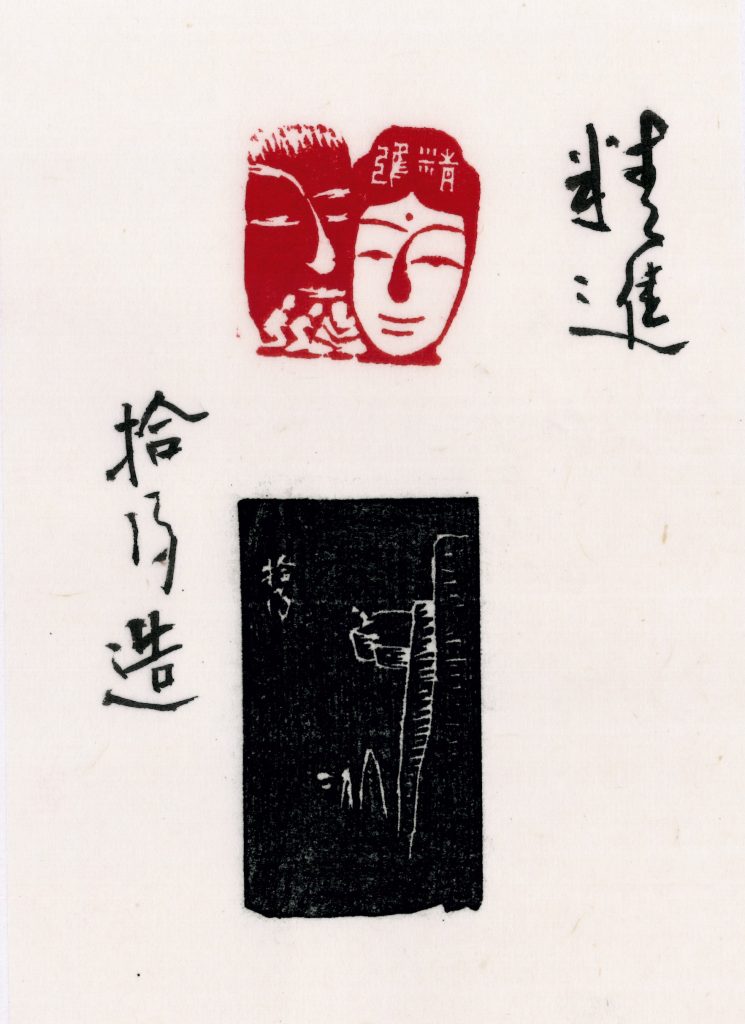 精進
精進
拾得造
拾得